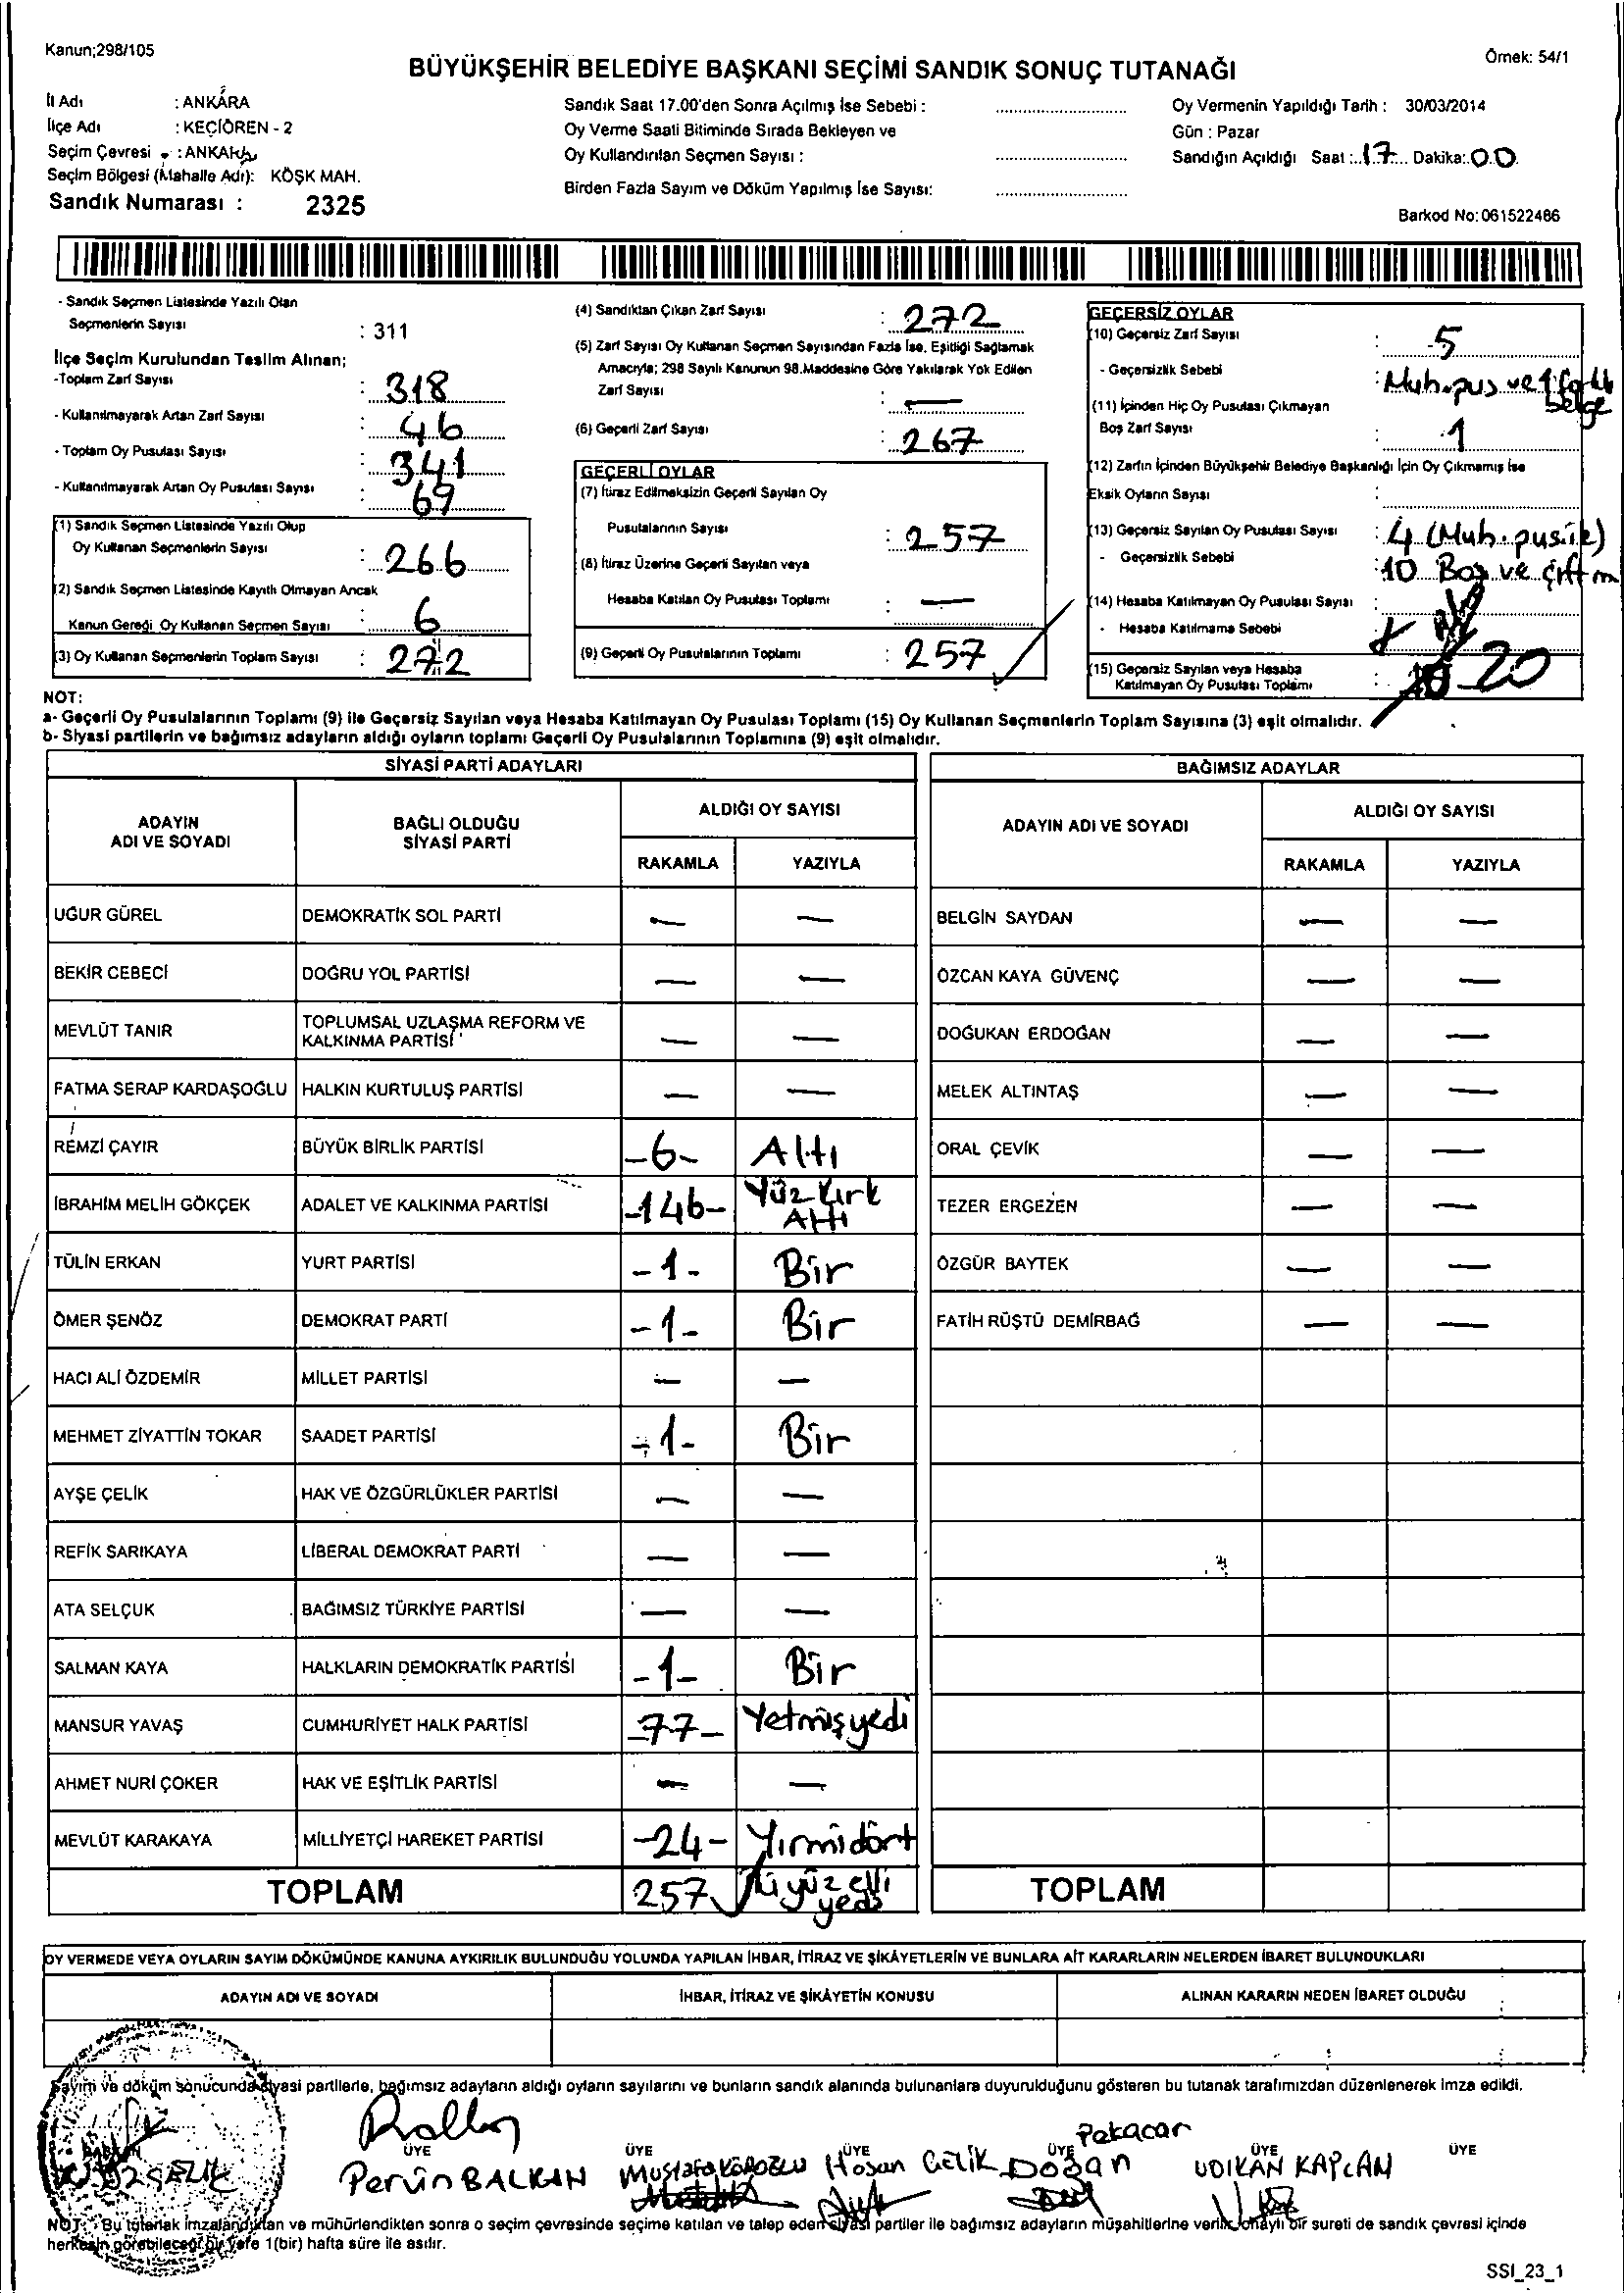 Kanun;298/105
Örnek: 54/1
BÜYÜKŞEHİR BELEDİYE BAŞKANI SEÇİMİ SANDIK SONUÇ TUTANAĞI
İl Adı : ANKARA
İlçe Adı : KEÇİÖREN - 2
Seçim Çevresi : ANKARA
Seçim Bölgesi (Mahalle Adı): KÖŞK MAH.
Sandık Numarası : 2325
Sandık Saat 17.00'den Sonra Açılmış İse Sebebi :
Oy Verme Saati Bitiminde Sırada Bekleyen ve
Oy Kullandırılan Seçmen Sayısı :
Birden Fazla Sayım ve Döküm Yapılmış İse Sayısı:
Oy Vermenin Yapıldığı Tarih : 30/03/2014
Gün : Pazar
Sandığın Açıldığı Saat : 17 Dakika: 00
Barkod No: 061522486
- Sandık Seçmen Listesinde Yazılı Olan
Seçmenlerin Sayısı : 311
İlçe Seçim Kurulundan Teslim Alınan;
-Toplam Zarf Sayısı : 318
- Kullanılmayarak Artan Zarf Sayısı : 46
- Toplam Oy Pusulası Sayısı : 341
- Kullanılmayarak Artan Oy Pusulası Sayısı : 69
(1) Sandık Seçmen Listesinde Yazılı Olup
Oy Kullanan Seçmenlerin Sayısı : 266
(2) Sandık Seçmen Listesinde Kayıtlı Olmayan Ancak
Kanun Gereği Oy Kullanan Seçmen Sayısı : 6
(3) Oy Kullanan Seçmenlerin Toplam Sayısı : 272
(4) Sandıktan Çıkan Zarf Sayısı : 272
(5) Zarf Sayısı Oy Kullanan Seçmen Sayısından Fazla İse, Eşitliği Sağlamak
Amacıyla; 298 Sayılı Kanunun 98.Maddesine Göre Yakılarak Yok Edilen
Zarf Sayısı : —
(6) Geçerli Zarf Sayısı : 267
GEÇERLİ OYLAR
(7) İtiraz Edilmeksizin Geçerli Sayılan Oy
Pusulalarının Sayısı : 257
(8) İtiraz Üzerine Geçerli Sayılan veya
Hesaba Katılan Oy Pusulası Toplamı : —
(9) Geçerli Oy Pusulalarının Toplamı : 257
GEÇERSİZ OYLAR
(10) Geçersiz Zarf Sayısı : 5
- Geçersizlik Sebebi : Muh.pus ve 1 farklı
belge
(11) İçinden Hiç Oy Pusulası Çıkmayan
Boş Zarf Sayısı : 1
(12) Zarfın İçinden Büyükşehir Belediye Başkanlığı İçin Oy Çıkmamış İse
Eksik Oyların Sayısı :
(13) Geçersiz Sayılan Oy Pusulası Sayısı : 4 (Muh. pus.
- Geçersizlik Sebebi : 10 Boş ve çift m
(14) Hesaba Katılmayan Oy Pusulası Sayısı :
- Hesaba Katılmama Sebebi
(15) Geçersiz Sayılan veya Hesaba
Katılmayan Oy Pusulası Toplamı : 20
NOT:
a- Geçerli Oy Pusulalarının Toplamı (9) ile Geçersiz Sayılan veya Hesaba Katılmayan Oy Pusulası Toplamı (15) Oy Kullanan Seçmenlerin Toplam Sayısına (3) eşit olmalıdır.
b- Siyasi partilerin ve bağımsız adayların aldığı oyların toplamı Geçerli Oy Pusulalarının Toplamına (9) eşit olmalıdır.
SİYASİ PARTİ ADAYLARI
ADAYIN ADI VE SOYADI BAĞLI OLDUĞU SİYASİ PARTİ ALDIĞI OY SAYISI
RAKAMLA YAZIYLA
UĞUR GÜREL DEMOKRATİK SOL PARTİ — —
BEKİR CEBECİ DOĞRU YOL PARTİSİ — —
MEVLÜT TANIR TOPLUMSAL UZLAŞMA REFORM VE KALKINMA PARTİSİ — —
FATMA SERAP KARDAŞOĞLU HALKIN KURTULUŞ PARTİSİ — —
REMZİ ÇAYIR BÜYÜK BİRLİK PARTİSİ -6- Altı
İBRAHİM MELİH GÖKÇEK ADALET VE KALKINMA PARTİSİ -146- Yüz Kırk Altı
TÜLİN ERKAN YURT PARTİSİ -1- Bir
ÖMER ŞENÖZ DEMOKRAT PARTİ -1- Bir
HACI ALİ ÖZDEMİR MİLLET PARTİSİ — —
MEHMET ZİYATTİN TOKAR SAADET PARTİSİ -1- Bir
AYŞE ÇELİK HAK VE ÖZGÜRLÜKLER PARTİSİ — —
REFİK SARIKAYA LİBERAL DEMOKRAT PARTİ — —
ATA SELÇUK BAĞIMSIZ TÜRKİYE PARTİSİ — —
SALMAN KAYA HALKLARIN DEMOKRATİK PARTİSİ -1- Bir
MANSUR YAVAŞ CUMHURİYET HALK PARTİSİ -77- Yetmiş yedi
AHMET NURİ ÇOKER HAK VE EŞİTLİK PARTİSİ — —
MEVLÜT KARAKAYA MİLLİYETÇİ HAREKET PARTİSİ -24- Yirmi dört
TOPLAM 257 İki yüz elli yedi
BAĞIMSIZ ADAYLAR
ADAYIN ADI VE SOYADI ALDIĞI OY SAYISI
RAKAMLA YAZIYLA
BELGİN SAYDAN — —
ÖZCAN KAYA GÜVENÇ — —
DOĞUKAN ERDOĞAN — —
MELEK ALTINTAŞ — —
ORAL ÇEVİK — —
TEZER ERGEZEN — —
ÖZGÜR BAYTEK — —
FATİH RÜŞTÜ DEMİRBAĞ — —
TOPLAM
OY VERMEDE VEYA OYLARIN SAYIM DÖKÜMÜNDE KANUNA AYKIRILIK BULUNDUĞU YOLUNDA YAPILAN İHBAR, İTİRAZ VE ŞİKÂYETLERİN VE BUNLARA AİT KARARLARIN NELERDEN İBARET BULUNDUKLARI
ADAYIN ADI VE SOYADI İHBAR, İTİRAZ VE ŞİKÂYETİN KONUSU ALINAN KARARIN NEDEN İBARET OLDUĞU
Sayım ve döküm sonucunda siyasi partilerle, bağımsız adayların aldığı oyların sayılarını ve bunların sandık alanında bulunanlara duyurulduğunu gösteren bu tutanak tarafımızdan düzenlenerek imza edildi.
BAŞKAN ÜYE ÜYE ÜYE ÜYE ÜYE ÜYE
Pervin BALKAN Mustafa KÖROĞLU Hasan ÇELİK Doğan Pekacar VOLKAN KAPLAN
NOT: Bu tutanak imzalandıktan ve mühürlendikten sonra o seçim çevresinde seçime katılan ve talep eden siyasi partiler ile bağımsız adayların müşahitlerine verilir, onaylı bir sureti de sandık çevresi içinde
herkesin görebileceği bir yere 1(bir) hafta süre ile asılır.
SSI_23_1